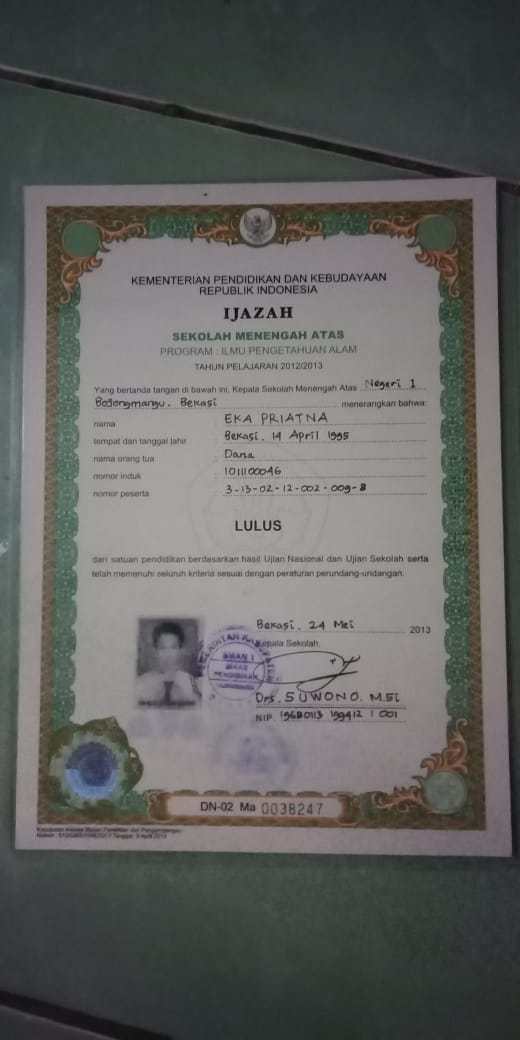 KEMENTERIAN PENDIDIKAN DAN KEBUDAYAAN
REPUBLIK INDONESIA
IJAZAH
SEKOLAH MENENGAH ATAS
PROGRAM : ILMU PENGETAHUAN ALAM
TAHUN PELAJARAN 2012/2013
Yang bertanda tangan di bawah ini, Kepala Sekolah Menengah Atas Negeri 1
Bojongmangu. Bekasi menerangkan bahwa:
nama : EKA PRIATNA
tempat dan tanggal lahir : Bekasi, 14 April 1995
nama orang tua : Dana
nomor induk : 101100046
nomor peserta : 3-13-02-12-002-009-8
LULUS
dari satuan pendidikan berdasarkan hasil Ujian Nasional dan Ujian Sekolah serta
telah memenuhi seluruh kriteria sesuai dengan peraturan perundang-undangan.
Bekasi, 24 Mei 2013
Kepala Sekolah,
SMAN 1
DINAS
PENDIDIKAN
Drs. SUWONO. M.Si
NIP. 19680113 199412 1 001
DN-02 Ma 0038247